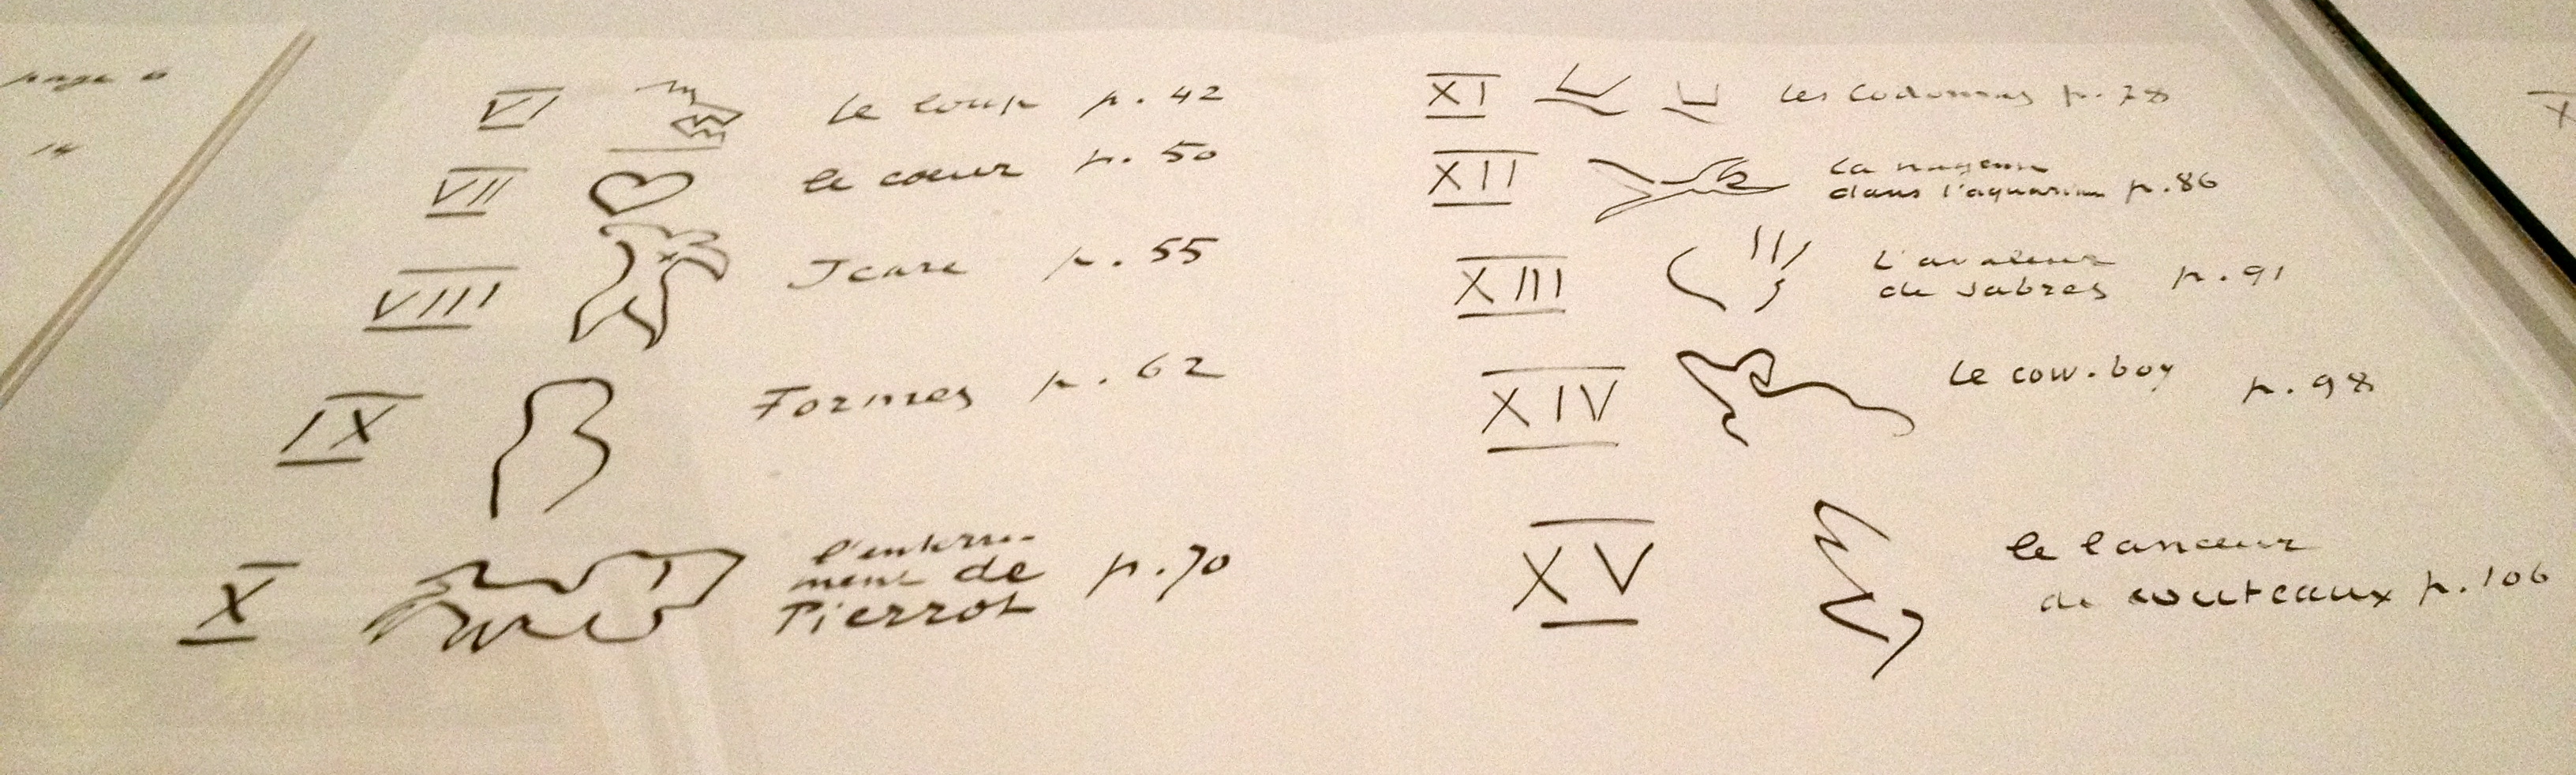 page 6
14
VI le loup p. 42
VII le coeur p. 50
VIII Icare p. 55
IX Formes p. 62
X l'enterre-
ment de
Pierrot p. 70
XI les Codomas p. 78
XII la nageuse
dans l'aquarium p. 86
XIII l'avaleur
de sabres p. 91
XIV le cow-boy p. 98
XV le lanceur
de couteaux p. 106
X